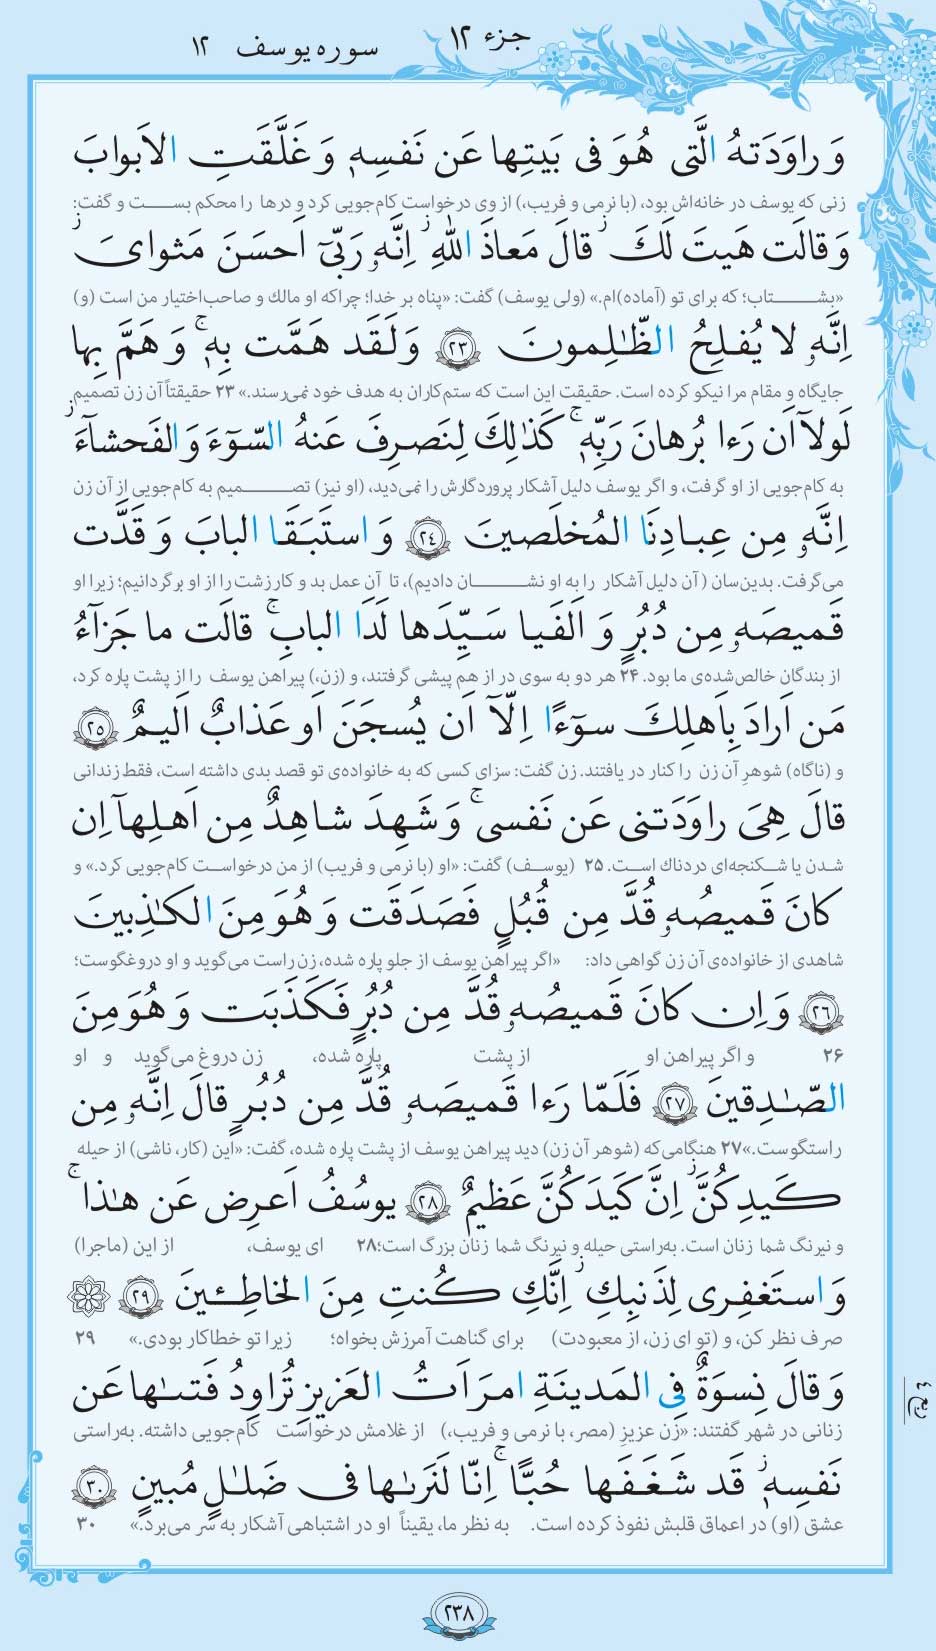 جزء ۱۲
سوره یوسف ۱۲
وَ راوَدَتهُ الَّتی هُوَ فی بَیتِها عَن نَفسِهٖ وَ غَلَّقَتِ الاَبوابَ
زنی که یوسف در خانه‌اش بود، (با نرمی و فریب،) از وی درخواست کام‌جویی کرد و درها را محکم بست و گفت:
وَ قالَت هَیتَ لَكَ ۚ قالَ مَعاذَ اللهِ ۖ اِنَّهٗ رَبّیٓ اَحسَنَ مَثوایَ
«بشتاب؛ که برای تو (آماده)ام.» (ولی یوسف) گفت: «پناه بر خدا؛ چراکه او مالك و صاحب‌اختیار من است (و)
اِنَّهٗ لا یُفلِحُ الظّٰلِمونَ ﴿۲۳﴾ وَ لَقَد هَمَّت بِهٖ ۚ وَ هَمَّ بِها
جایگاه و مقام مرا نیکو کرده است. حقیقت این است که ستم‌کاران به هدف خود نمی‌رسند.» ۲۳ حقیقتاً آن زن تصمیم
لَولآ اَن رَءا بُرهانَ رَبِّهٖ ۚ کَذٰلِكَ لِنَصرِفَ عَنهُ السّوٓءَ وَ الفَحشآءَ
به کام‌جویی از او گرفت، و اگر یوسف دلیل آشکار پروردگارش را نمی‌دید، (او نیز) تصمیم به کام‌جویی از آن زن
اِنَّهٗ مِن عِبادِنَا المُخلَصینَ ﴿۲۴﴾ وَ استَبَقَا البابَ وَ قَدَّت
می‌گرفت. بدین‌سان (آن دلیل آشکار را به او نشان دادیم)، تا آن عمل بد و کار زشت را از او برگردانیم؛ زیرا او
قَمیصَهٗ مِن دُبُرٍ وَ اَلفَیا سَیِّدَها لَدَا البابِ ۚ قالَت ما جَزآءُ
از بندگان خالص‌شده‌ی ما بود. ۲۴ هر دو به سوی در از هم پیشی گرفتند، و (زن،) پیراهن یوسف را از پشت پاره کرد،
مَن اَرادَ بِاَهلِكَ سوٓءًا اِلّآ اَن یُسجَنَ اَو عَذابٌ اَلیمٌ ﴿۲۵﴾
و (ناگاه) شوهرِ آن زن را کنار در یافتند. زن گفت: سزای کسی که به خانواده‌ی تو قصد بدی داشته است، فقط زندانی
قالَ هِیَ راوَدَتنی عَن نَفسی ۚ وَ شَهِدَ شاهِدٌ مِن اَهلِهآ اِن
شدن یا شکنجه‌ای دردناك است. ۲۵ (یوسف) گفت: «او (با نرمی و فریب) از من درخواست کام‌جویی کرد.» و
کانَ قَمیصُهٗ قُدَّ مِن قُبُلٍ فَصَدَقَت وَ هُوَ مِنَ الکٰذِبینَ
شاهدی از خانواده‌ی آن زن گواهی داد: «اگر پیراهن یوسف از جلو پاره شده، زن راست می‌گوید و او دروغگوست؛
﴿۲۶﴾ وَ اِن کانَ قَمیصُهٗ قُدَّ مِن دُبُرٍ فَکَذَبَت وَ هُوَ مِنَ
۲۶ و اگر پیراهن او از پشت پاره شده، زن دروغ می‌گوید و او
الصّٰدِقینَ ﴿۲۷﴾ فَلَمّا رَءا قَمیصَهٗ قُدَّ مِن دُبُرٍ قالَ اِنَّهٗ مِن
راستگوست.» ۲۷ هنگامی‌که (شوهر آن زن) دید پیراهن یوسف از پشت پاره شده، گفت: «این (کار، ناشی) از حیله
کَیدِکُنَّ ۖ اِنَّ کَیدَکُنَّ عَظیمٌ ﴿۲۸﴾ یوسُفُ اَعرِض عَن هٰذا ۚ
و نیرنگ شما زنان است. به‌راستی حیله و نیرنگ شما زنان بزرگ است؛ ۲۸ ای یوسف، از این (ماجرا)
وَ استَغفِری لِذَنبِكِ ۖ اِنَّكِ کُنتِ مِنَ الخاطِـٔینَ ﴿۲۹﴾
صرف نظر کن، و (تو ای زن، از معبودت) برای گناهت آمرزش بخواه؛ زیرا تو خطاکار بودی.» ۲۹
وَ قالَ نِسوَةٌ فِی المَدینَةِ امرَاَتُ العَزیزِ تُراوِدُ فَتىٰها عَن
زنانی در شهر گفتند: «زن عزیزِ (مصر، با نرمی و فریب،) از غلامش درخواست کام‌جویی داشته. به‌راستی
نَفسِهٖ ۖ قَد شَغَفَها حُبًّا ۚ اِنّا لَنَرىٰها فی ضَلٰلٍ مُبینٍ ﴿۳۰﴾
عشق (او) در اعماق قلبش نفوذ کرده است. به نظر ما، یقیناً او در اشتباهی آشکار به سر می‌برد.» ۳۰
ربع ٤
۲۳۸